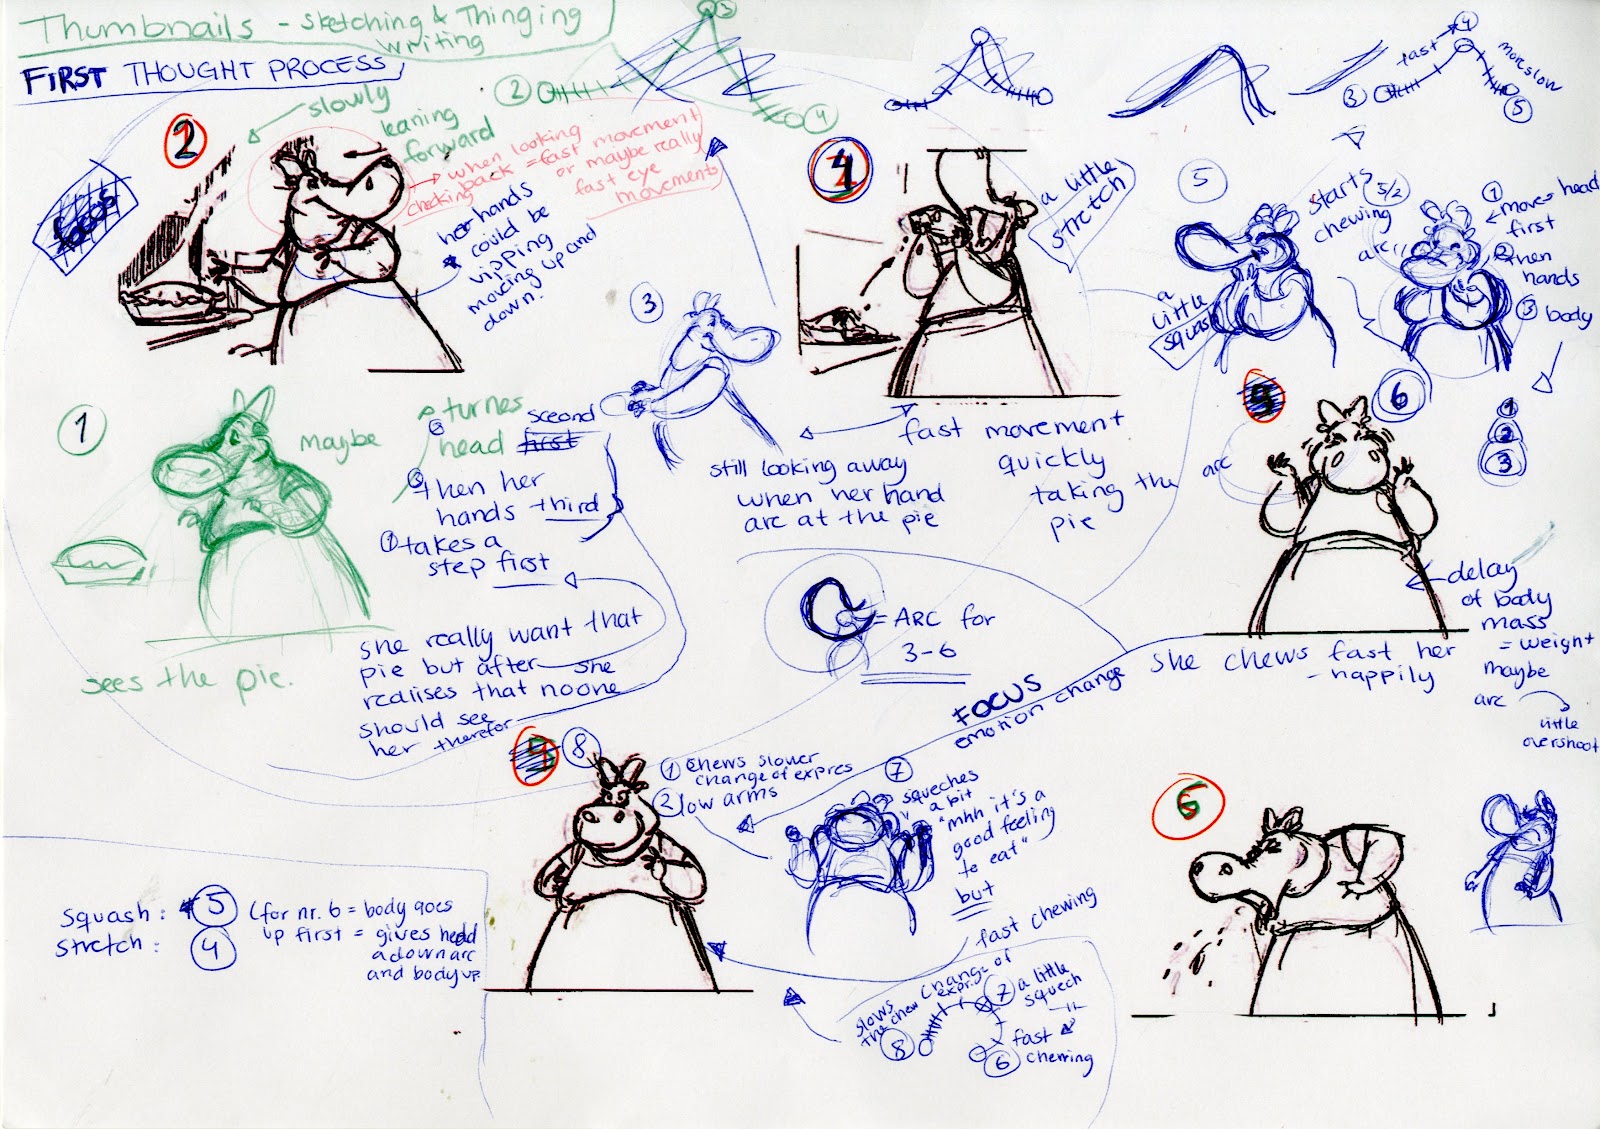 Thumbnails - Sketching & Thinging
writing
FIRST THOUGHT PROCESS
2
slowly
leaning
forward
when looking
back = fast movement
checking
or maybe really
fast eye
movements
her hands
could be
vipping
moving up and
down.
2
3
4
4
3
fast
more slow
5
1
maybe
turnes
2
head second
first
3
then her
hands third
1
takes a
step first
sees the pie.
she really want that
pie but after she
realises that noone
should see
her therefor
3
still looking away
when her hand
arc at the pie
4
a little
stretch
fast movement
quickly
taking the
pie
5
a
little
squash
starts
chewing
5/2
arc
1
move head
first
2
then
hands
3
body
1
2
3
6
arc
delay
of body
mass
= weight
maybe
arc
little
overshoot
she chews fast her
- happily
= ARC for
3-6
FOCUS
emotion change
8
1
chews slower
change of expres
2
low arms
7
squeches
a bit
"mhh it's a
good feeling
to eat"
but
fast chewing
6
squash: 5
stretch: 4
(for nr. 6 = body goes
up first = gives head
a down arc
and body up
slows
the chew
change of
expr.
7
a little
squech
8
6
fast
chewing